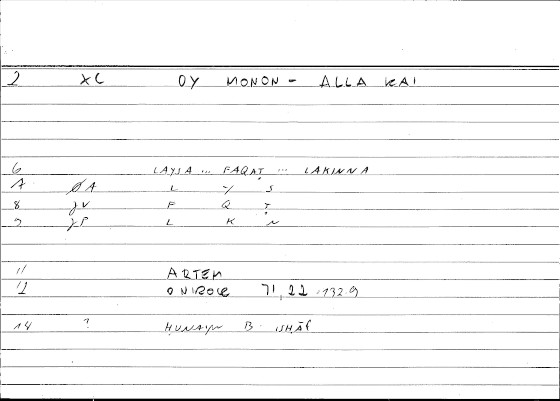 2 XC OY MONON - ALLA KAI
6 LAYSA ... FAQAṬ ... LAKINNA
7 ØA L Y S
8 JV F Q Ṭ
9 JP L K N
11 ARTEM
12 ONIROCR 71,22 132.9
14 ? HUNAYN B. ISHĀQ